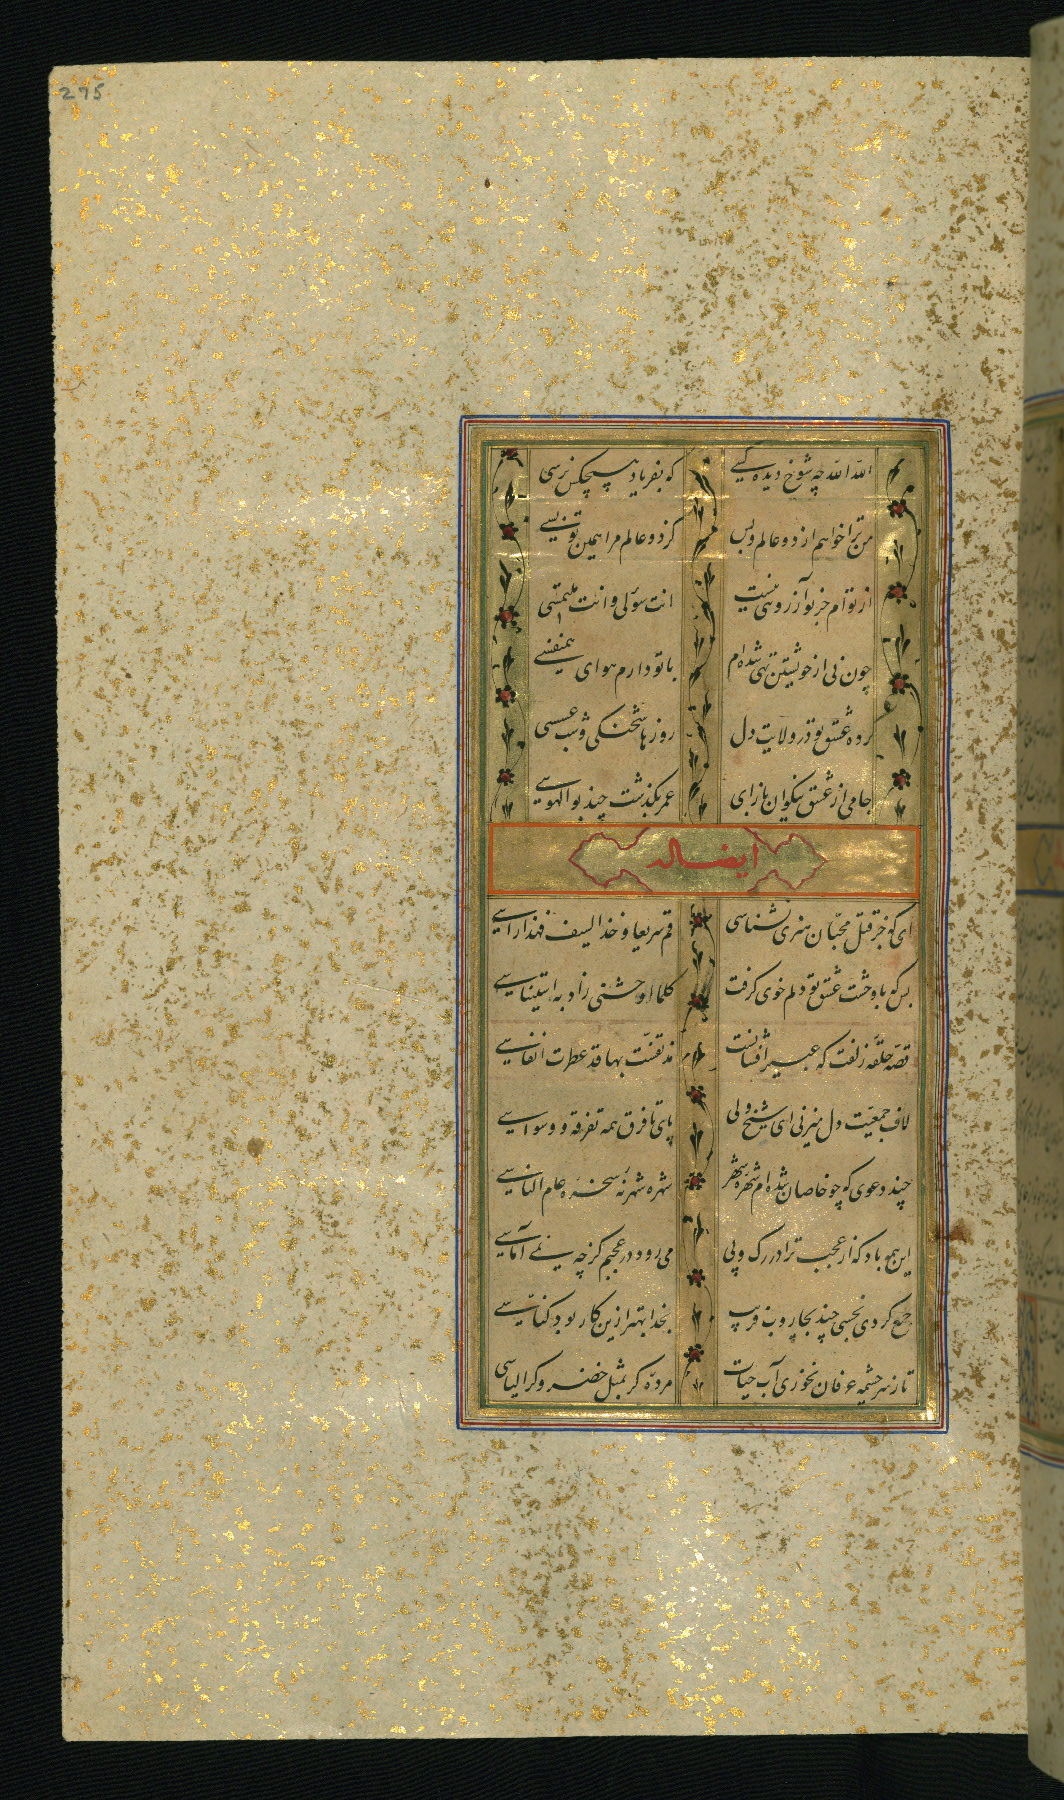 275
الله الله چه شوخ دیده کسی که بفریاد هیچکس نرسی
من ترا خواهم از دو عالم و بس کز دو عالم مرا همین تو بسی
از توام جز تو آرزوئی نیست انت سؤلی و انت ملتمسی
چون نی از خویشتن تهی شده ام با تو دارم هوای همنفسی
کرده عشق تو در ولایت دل روزها شحنکی و شب عسسی
جامی از عشق نیکوان باز آی عمر بگذشت چند بوالهوسی
ایضاله
ای که جز قتل محبان هنری نشناسی قم سریعا و خذ السیف فهذا راسی
بس که با وحشت عشق تو دلم خوی کرفت کلما اوحشنی زاد به استیناسی
قصه حلقه زلفت که عبیر افشانست مذ تفننت بها قد عطرت انفاسی
لاف جمعیت دل میزنی ای شیخ ولی پای تا فرق همه تفرقه و وسواسی
چند دعوی که چو خاصان شده ام شهره شهر شهره شهر نه سخره عام الناسی
این همه باد که از عجب ترا در رک و پی می رود در عجبم کز چه نمی آماسی
جمع کردی نخسی چند بجاروب فریب بخدا بهتر ازین کار بود کناسی
تا ز سرچشمه عرفان نخوری آب حیات مرده کر بمثل خضر و کر الیاسی